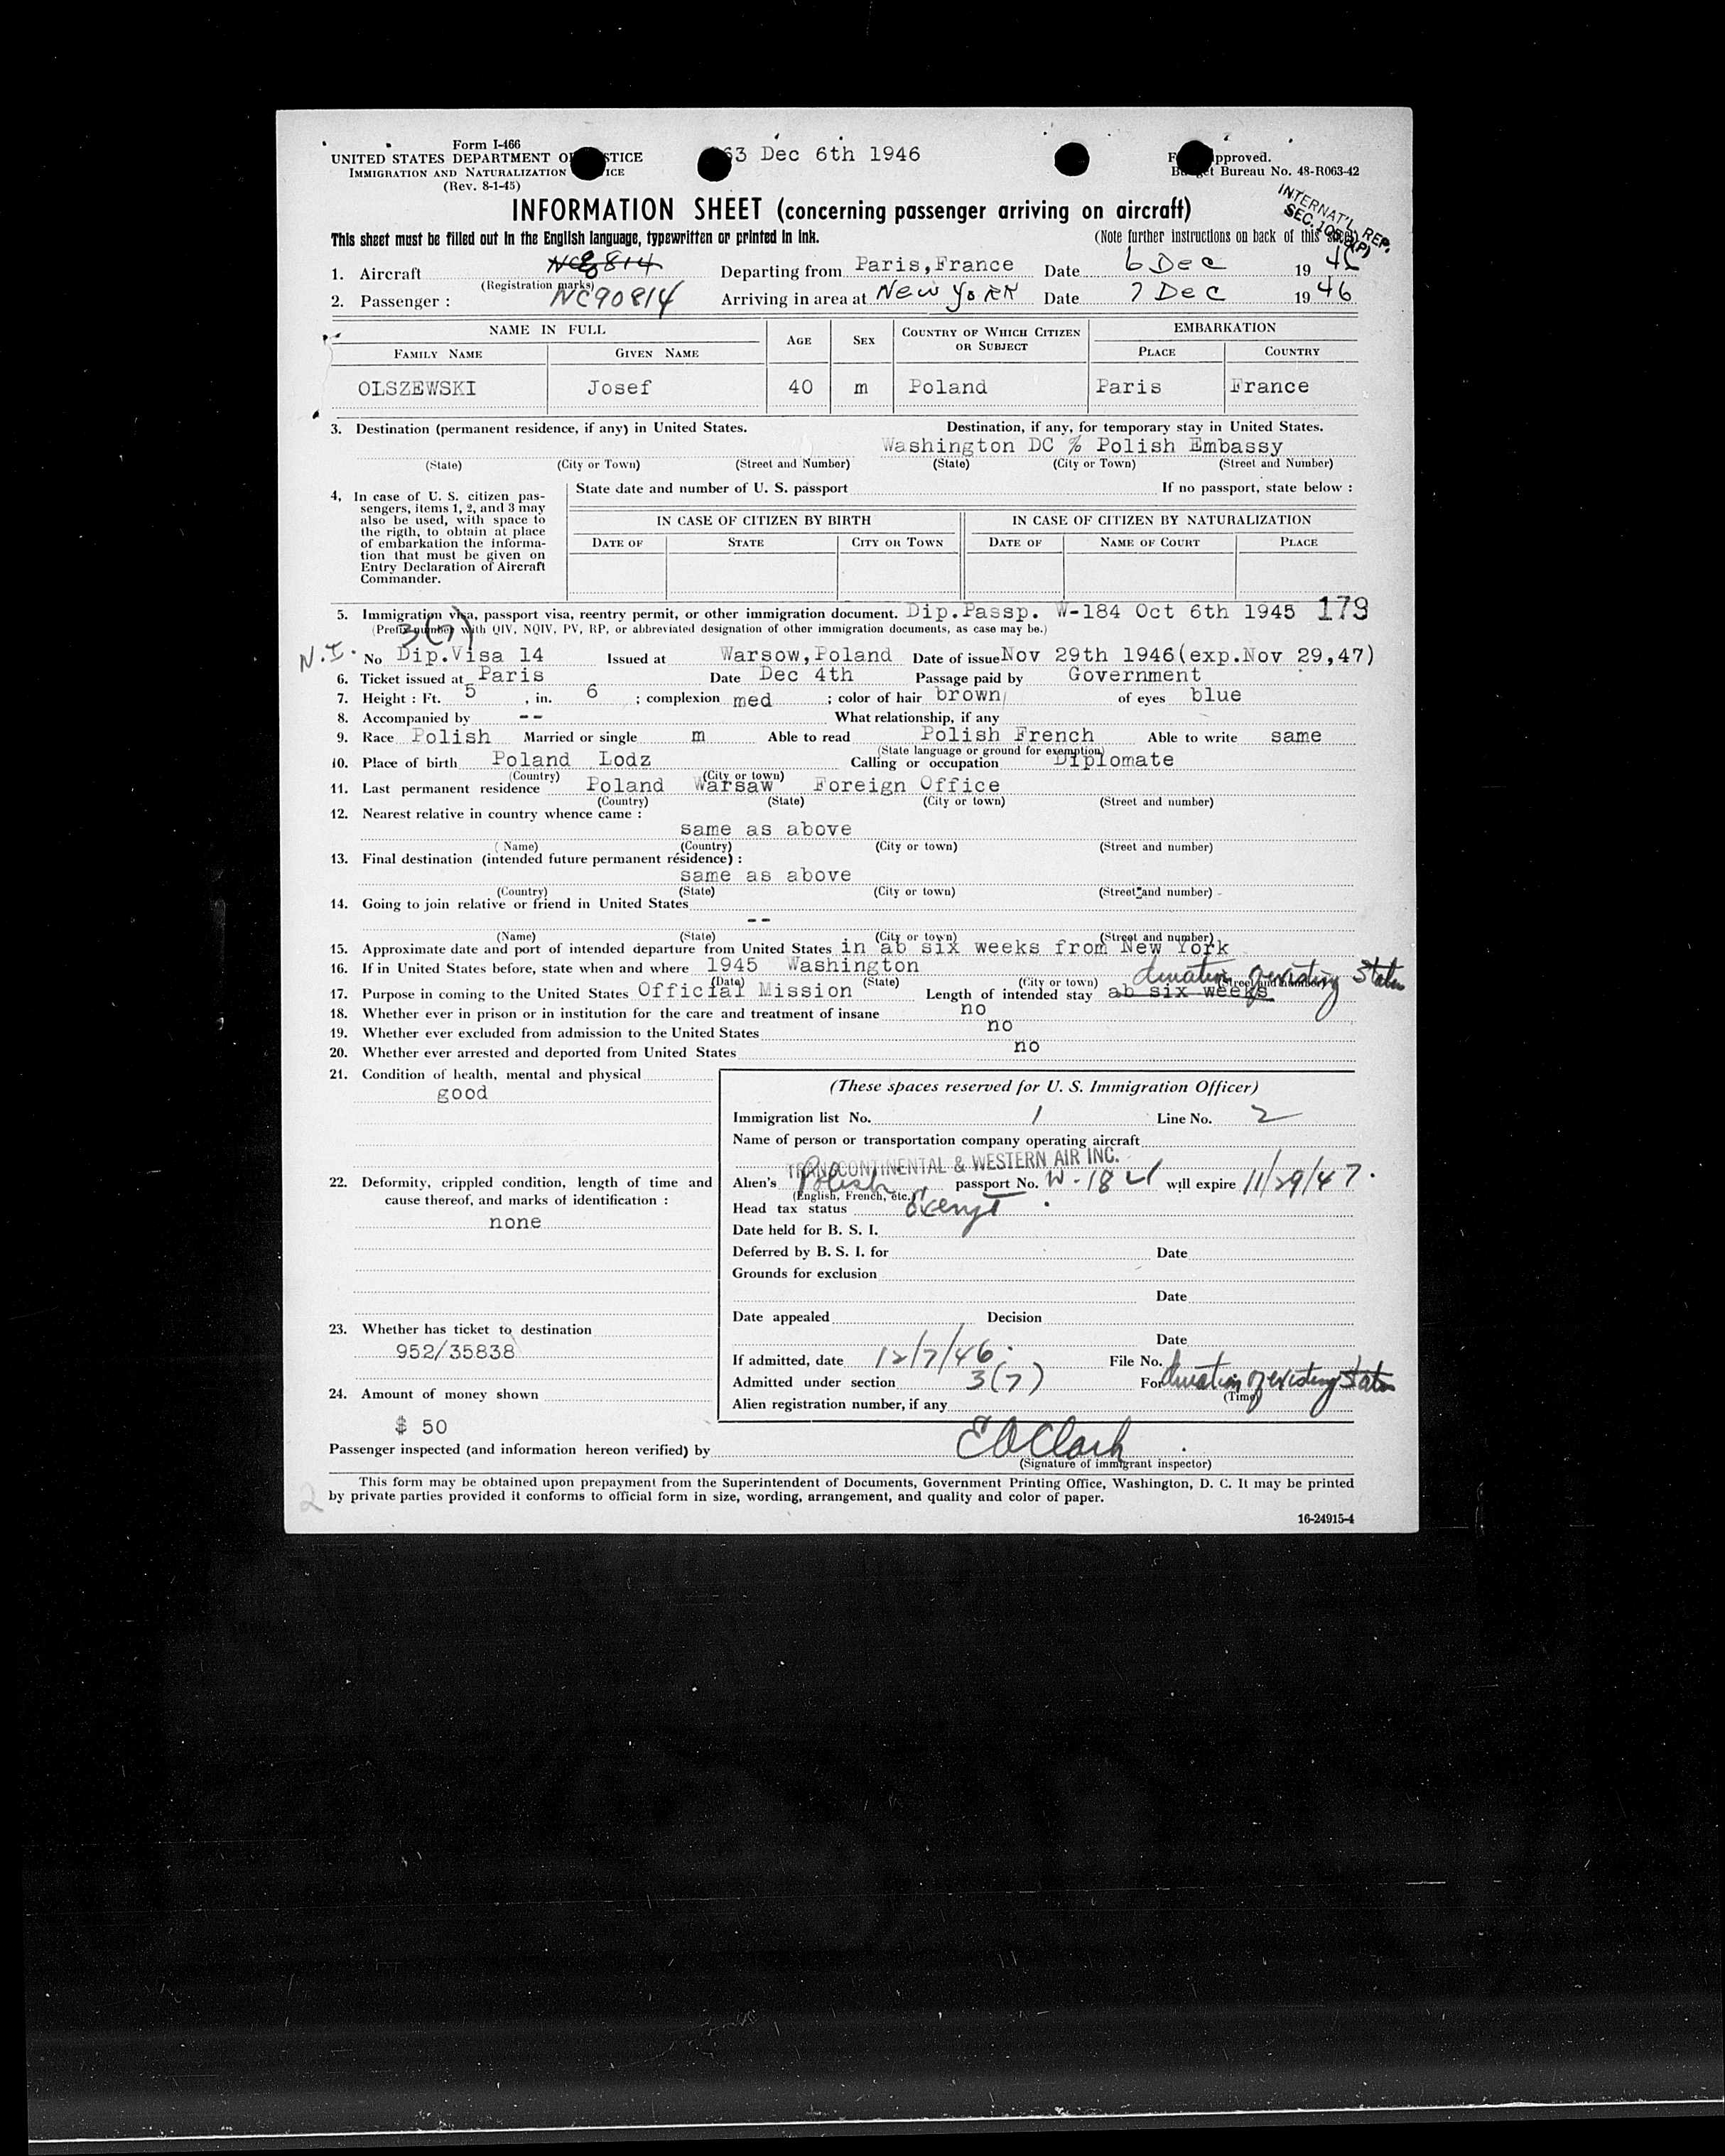 Form I-466
UNITED STATES DEPARTMENT O STICE
63 Dec 6th 1946
F pproved.
IMMIGRATION AND NATURALIZATION ICE
B et Bureau No. 48-R063-42
(Rev. 8-1-45)
INTERNAT'L REP.
INFORMATION SHEET (concerning passenger arriving on aircraft)
This sheet must be filled out in the English language, typewritten or printed in ink.
(Note further instructions on back of this sheet)
1. Aircraft Departing from Paris, France Date 6 Dec 19
(Registration marks) NC90814
2. Passenger : Arriving in area at New YoRK Date 7 Dec 19 46
NAME IN FULL AGE SEX COUNTRY OF WHICH CITIZEN OR SUBJECT EMBARKATION
FAMILY NAME GIVEN NAME PLACE COUNTRY
OLSZEWSKI Josef 40 m Poland Paris France
3. Destination (permanent residence, if any) in United States. Destination, if any, for temporary stay in United States.
Washington DC % Polish Embassy
(State) (City or Town) (Street and Number) (State) (City or Town) (Street and Number)
4. In case of U. S. citizen pas-
sengers, items 1, 2, and 3 may
also be used, with space to
the rigth, to obtain at place
of embarkation the informa-
tion that must be given on
Entry Declaration of Aircraft
Commander.
State date and number of U. S. passport If no passport, state below :
IN CASE OF CITIZEN BY BIRTH IN CASE OF CITIZEN BY NATURALIZATION
DATE OF STATE CITY OR TOWN DATE OF NAME OF COURT PLACE
5. Immigration visa, passport visa, reentry permit, or other immigration document. Dip.Passp. W-184 Oct 6th 1945 179
(Prefix number with QIV, NQIV, PV, RP, or abbreviated designation of other immigration documents, as case may be.)
3(7)
N.I. No Dip.Visa 14 Issued at Warsow, Poland Date of issue Nov 29th 1946(exp.Nov 29,47)
6. Ticket issued at Paris Date Dec 4th Passage paid by Government
7. Height : Ft. 5 , in. 6 ; complexion med ; color of hair brown of eyes blue
8. Accompanied by -- What relationship, if any
9. Race Polish Married or single m Able to read Polish French Able to write same
(State language or ground for exemption)
10. Place of birth Poland Lodz Calling or occupation Diplomate
(Country) (City or town)
11. Last permanent residence Poland Warsaw Foreign Office
(Country) (State) (City or town) (Street and number)
12. Nearest relative in country whence came :
same as above
( Name) (Country) (City or town) (Street and number)
13. Final destination (intended future permanent résidence) :
same as above
(Country) (State) (City or town) (Street and number)
14. Going to join relative or friend in United States
--
(Name) (State) (City or town) (Street and number)
15. Approximate date and port of intended departure from United States in ab six weeks from New York
16. If in United States before, state when and where 1945 Washington
(Date) (State) (City or town) (Street and number)
duration of existing Status
17. Purpose in coming to the United States Official Mission Length of intended stay ab six weeks
18. Whether ever in prison or in institution for the care and treatment of insane no
19. Whether ever excluded from admission to the United States no
20. Whether ever arrested and deported from United States no
21. Condition of health, mental and physical
good
22. Deformity, crippled condition, length of time and
cause thereof, and marks of identification :
none
23. Whether has ticket to destination
952/35838
24. Amount of money shown
$ 50
(These spaces reserved for U. S. Immigration Officer)
Immigration list No. 1 Line No. 2
Name of person or transportation company operating aircraft
TRANSCONTINENTAL & WESTERN AIR INC.
Alien's Polish passport No. W-184 will expire 11/29/47.
(English, French, etc.)
Head tax status Exempt
Date held for B. S. I.
Deferred by B. S. I. for Date
Grounds for exclusion
Date
Date appealed Decision
Date
If admitted, date 12/7/46. File No.
Admitted under section 3(7) For duration of existing Status
(Time)
Alien registration number, if any
Passenger inspected (and information hereon verified) by E A Clark
(Signature of immigrant inspector)
This form may be obtained upon prepayment from the Superintendent of Documents, Government Printing Office, Washington, D. C. It may be printed
by private parties provided it conforms to official form in size, wording, arrangement, and quality and color of paper.
2
16-24915-4